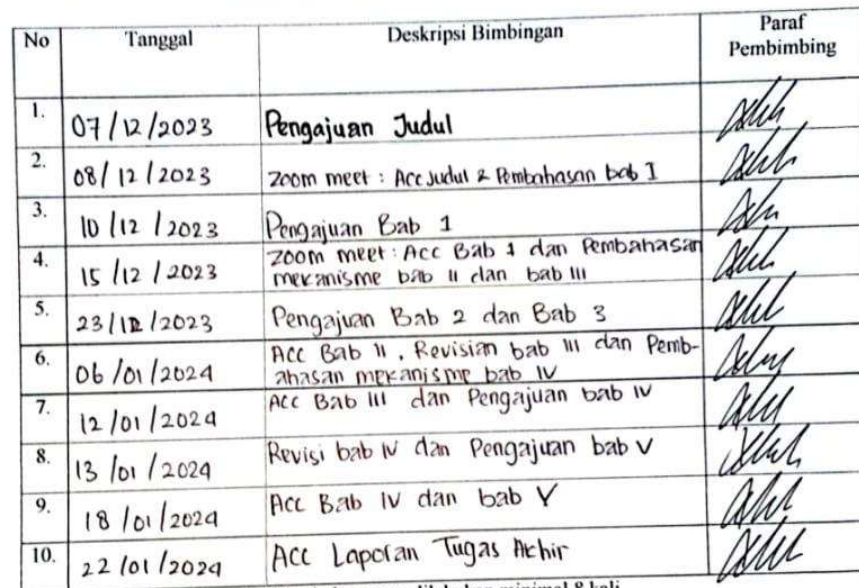 No Tanggal Deskripsi Bimbingan Paraf
Pembimbing
1. 07/12/2023 Pengajuan Judul
2. 08/12/2023 Zoom meet : Acc Judul & Pembahasan bab I
3. 10/12/2023 Pengajuan Bab 1
4. 15/12/2023 Zoom meet : Acc Bab 1 dan Pembahasan
mekanisme bab II dan bab III
5. 23/12/2023 Pengajuan Bab 2 dan Bab 3
6. 06/01/2024 Acc Bab II, Revisian bab III dan Pemb-
ahasan mekanisme bab IV
7. 12/01/2024 Acc Bab III dan Pengajuan bab IV
8. 13/01/2024 Revisi bab IV dan Pengajuan bab V
9. 18/01/2024 Acc Bab IV dan bab V
10. 22/01/2024 Acc Laporan Tugas Akhir
minimal 8 kali